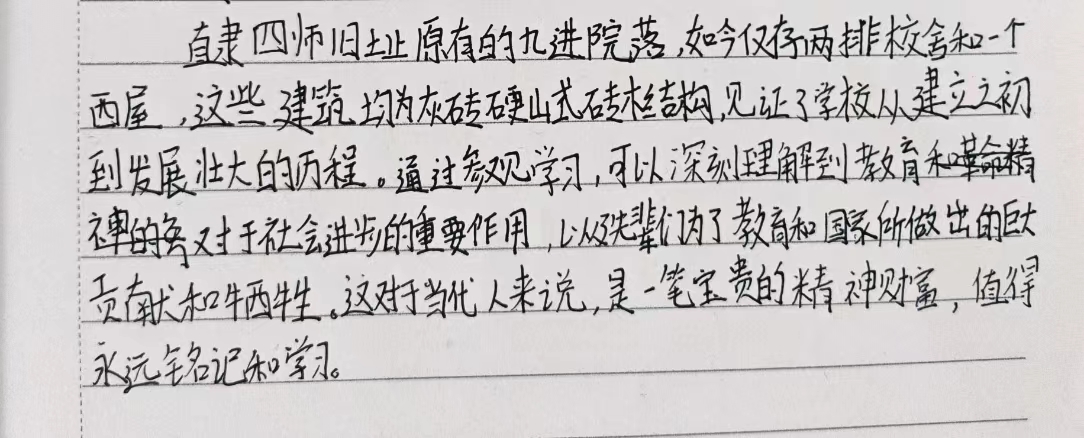 直隶四师旧址原有的九进院落,如今仅存两排校舍和一个
西屋,这些建筑均为灰砖硬山式砖木结构,见证了学校从建立之初
到发展壮大的历程。通过参观学习,可以深刻理解到教育和革命精
神的对于社会进步的重要作用,以及先辈们为了教育和国家所做出的巨大
贡献和牺牲。这对于当代人来说,是一笔宝贵的精神财富,值得
永远铭记和学习。